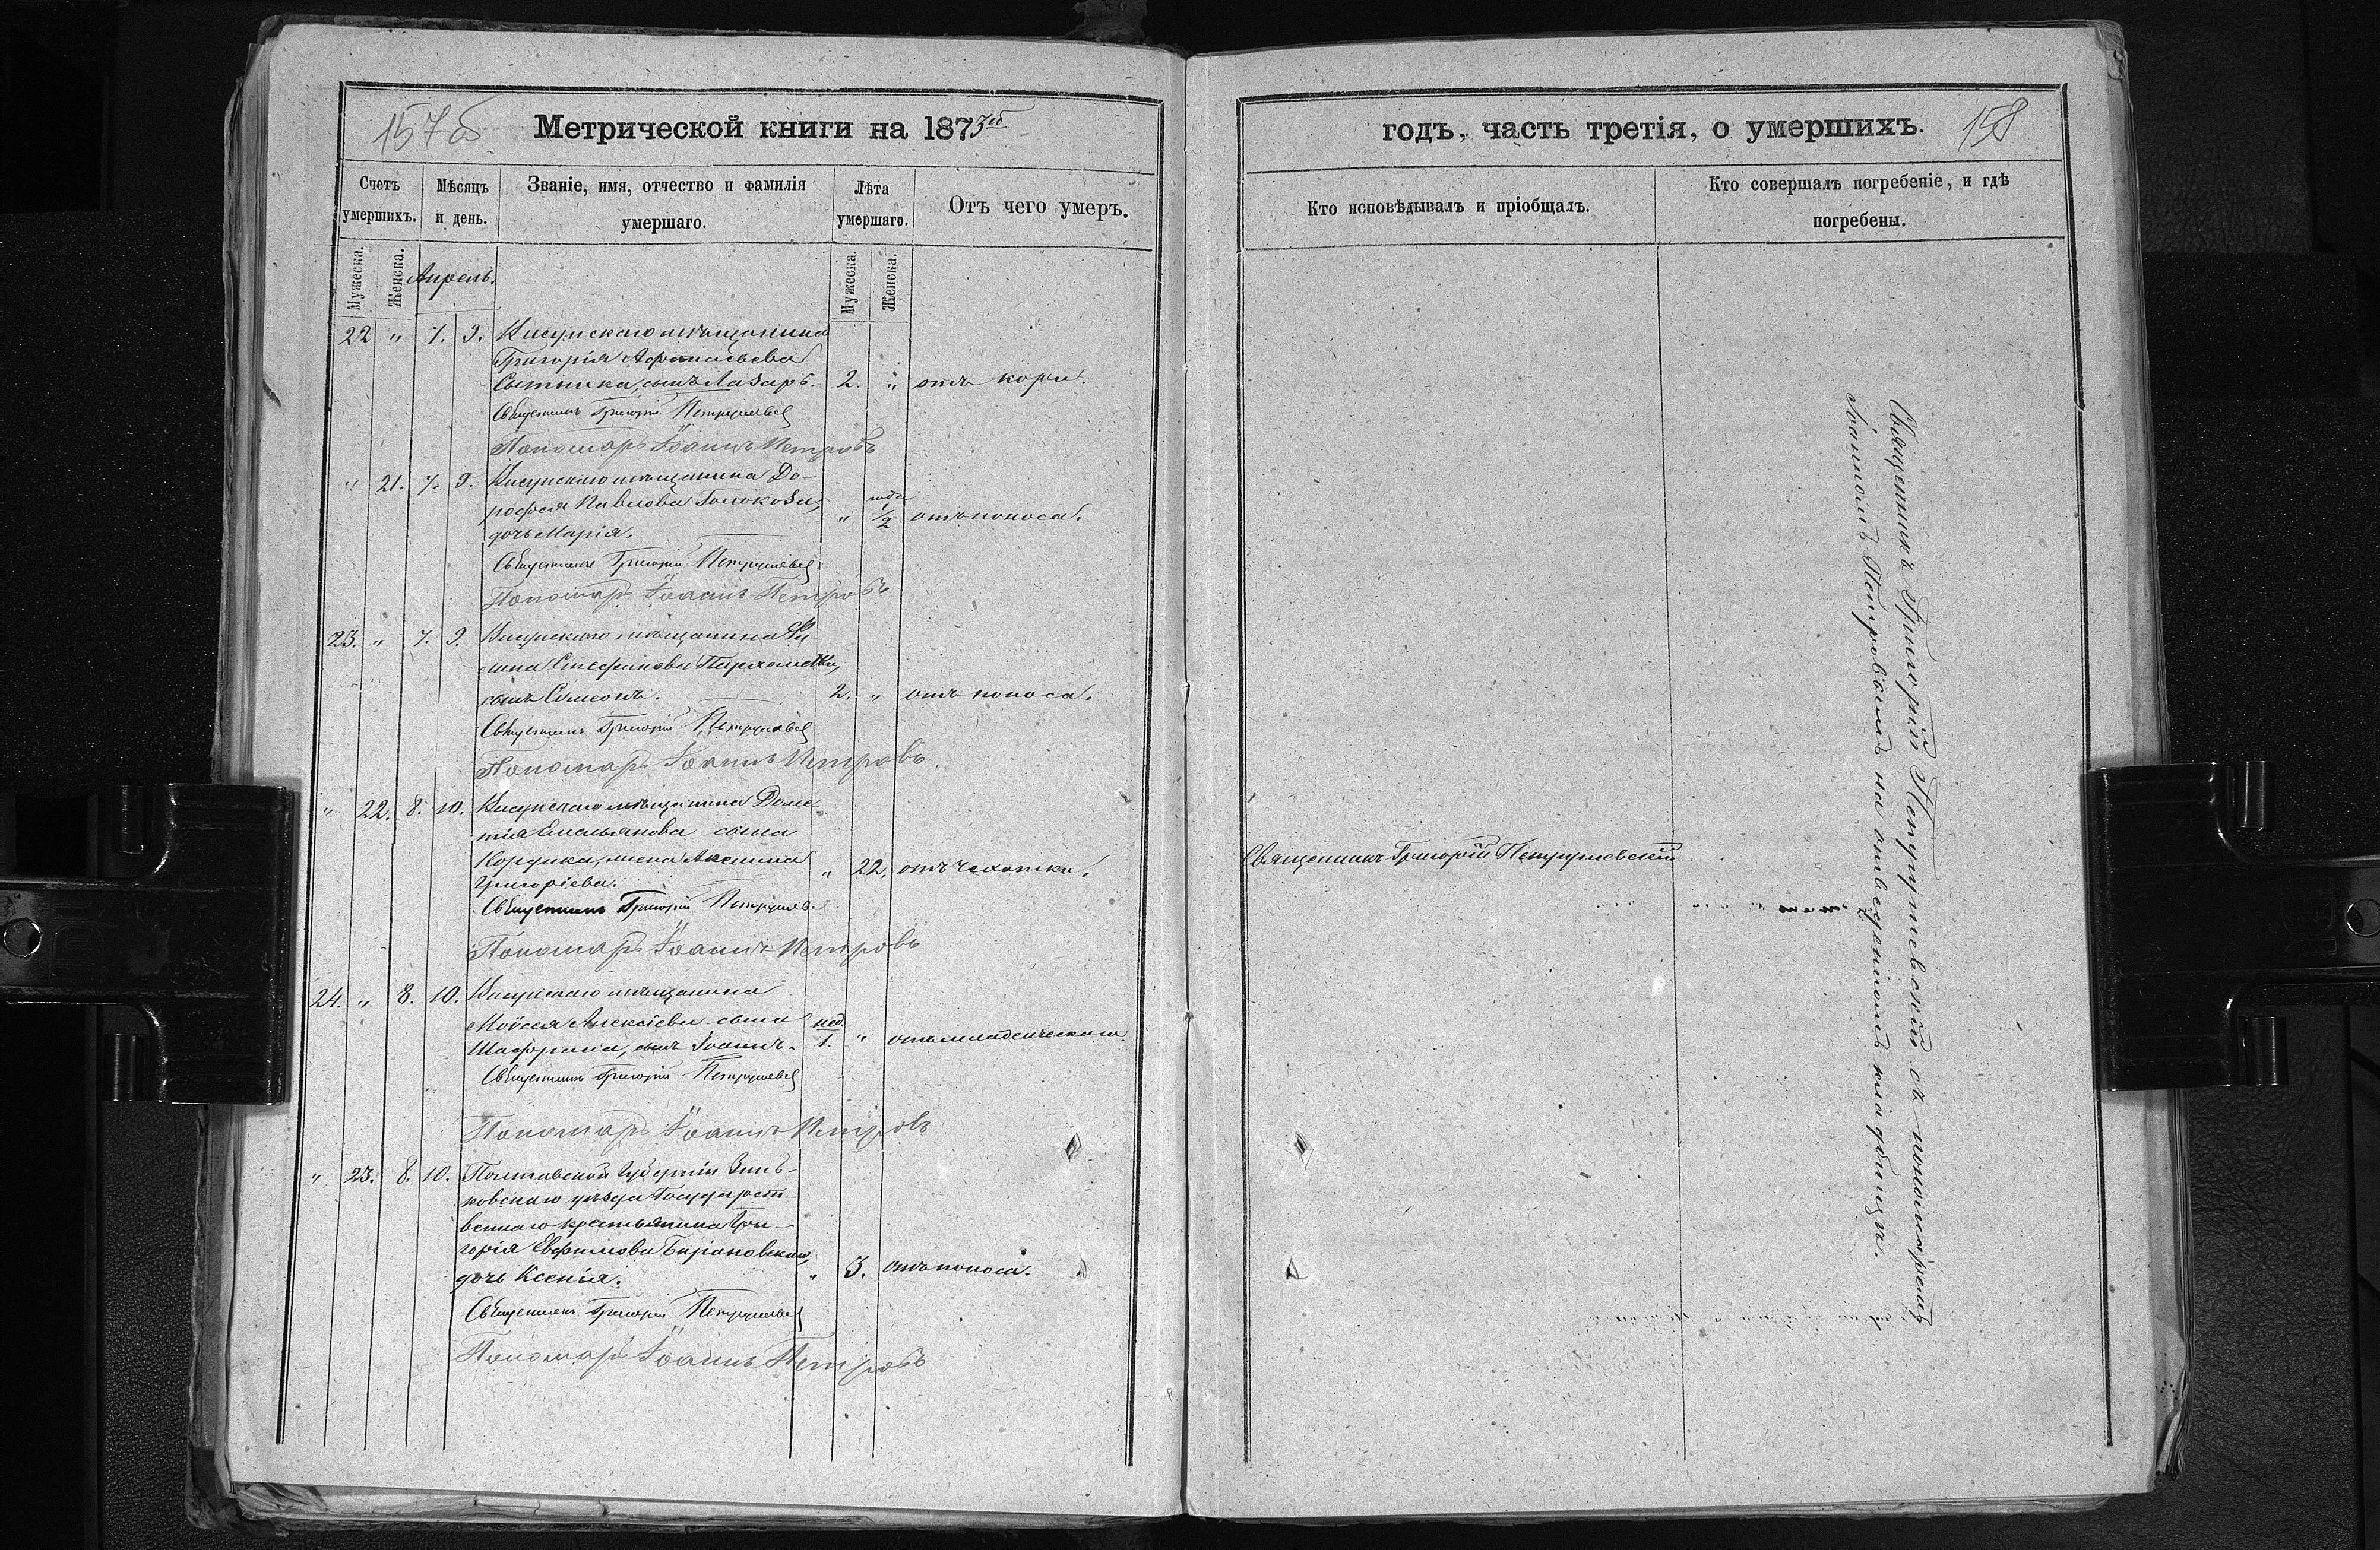 157об
Метрической книги на 1873й
Счетъ умершихъ.
Мѣсяцъ и день.
Званіе, имя, отчество и фамилія умершаго.
Лѣта умершаго.
Отъ чего умеръ.
Мужеска.
Женска.
Апрель.
Мужеска.
Женска.
22 " 7. 9. Висунскаго мѣщанина
Григорія Афанасьева
Сытника, сынъ Лазарь. 2. " отъ кори.
Священникъ Григорій Петрушевскій
Пономарь Іоаннъ Петровъ
" 21. 7. 9. Висунскаго мѣщанина До-
рофея Павлова дочь Марія. " года 1/2 отъ поноса.
Священникъ Григорій Петрушевскій
Пономарь Іоаннъ Петровъ
23. " 7. 9. Висунскаго мѣщанина Фи-
липа Стефанова Пархоменка,
сынъ Симеонъ. 2. " отъ поноса.
Священникъ Григорій Петрушевскій
Пономарь Іоаннъ Петровъ.
" 22. 8. 10. Висунскаго мѣщанина Доме-
тія Емельянова сына
Кордика, жена Акилина
Григоріева. " 22. отъ чахотки.
Священникъ Григорій Петрушевскій
Пономарь Іоаннъ Петровъ
24. " 8. 10. Висунскаго мѣщанина
Моѵсея Алексѣева сына
Шафрана, сынъ Іоаннъ. нед. 1. " отъ младенческаго.
Священникъ Григорій Петрушевскій
Пономарь Іоаннъ Петровъ
" 23. 8. 10. Полтавской Губерніи Зинь-
ковскаго уѣзда Государст-
веннаго крестьянина Гри-
горія Евфимова Барановскаго,
дочь Ксенія. " 3. отъ поноса.
Священникъ Григорій Петрушевскій
Пономарь Іоаннъ Петровъ
годъ, часть третія, о умершихъ.
158
Кто исповѣдывалъ и пріобщалъ.
Кто совершалъ погребеніе, и гдѣ погребены.
Священникъ Григорій Петрушевскій
Священникъ Григорій Петрушевскій съ пономаремъ
Іоанномъ Петровымъ на отведенномъ кладбищѣ.